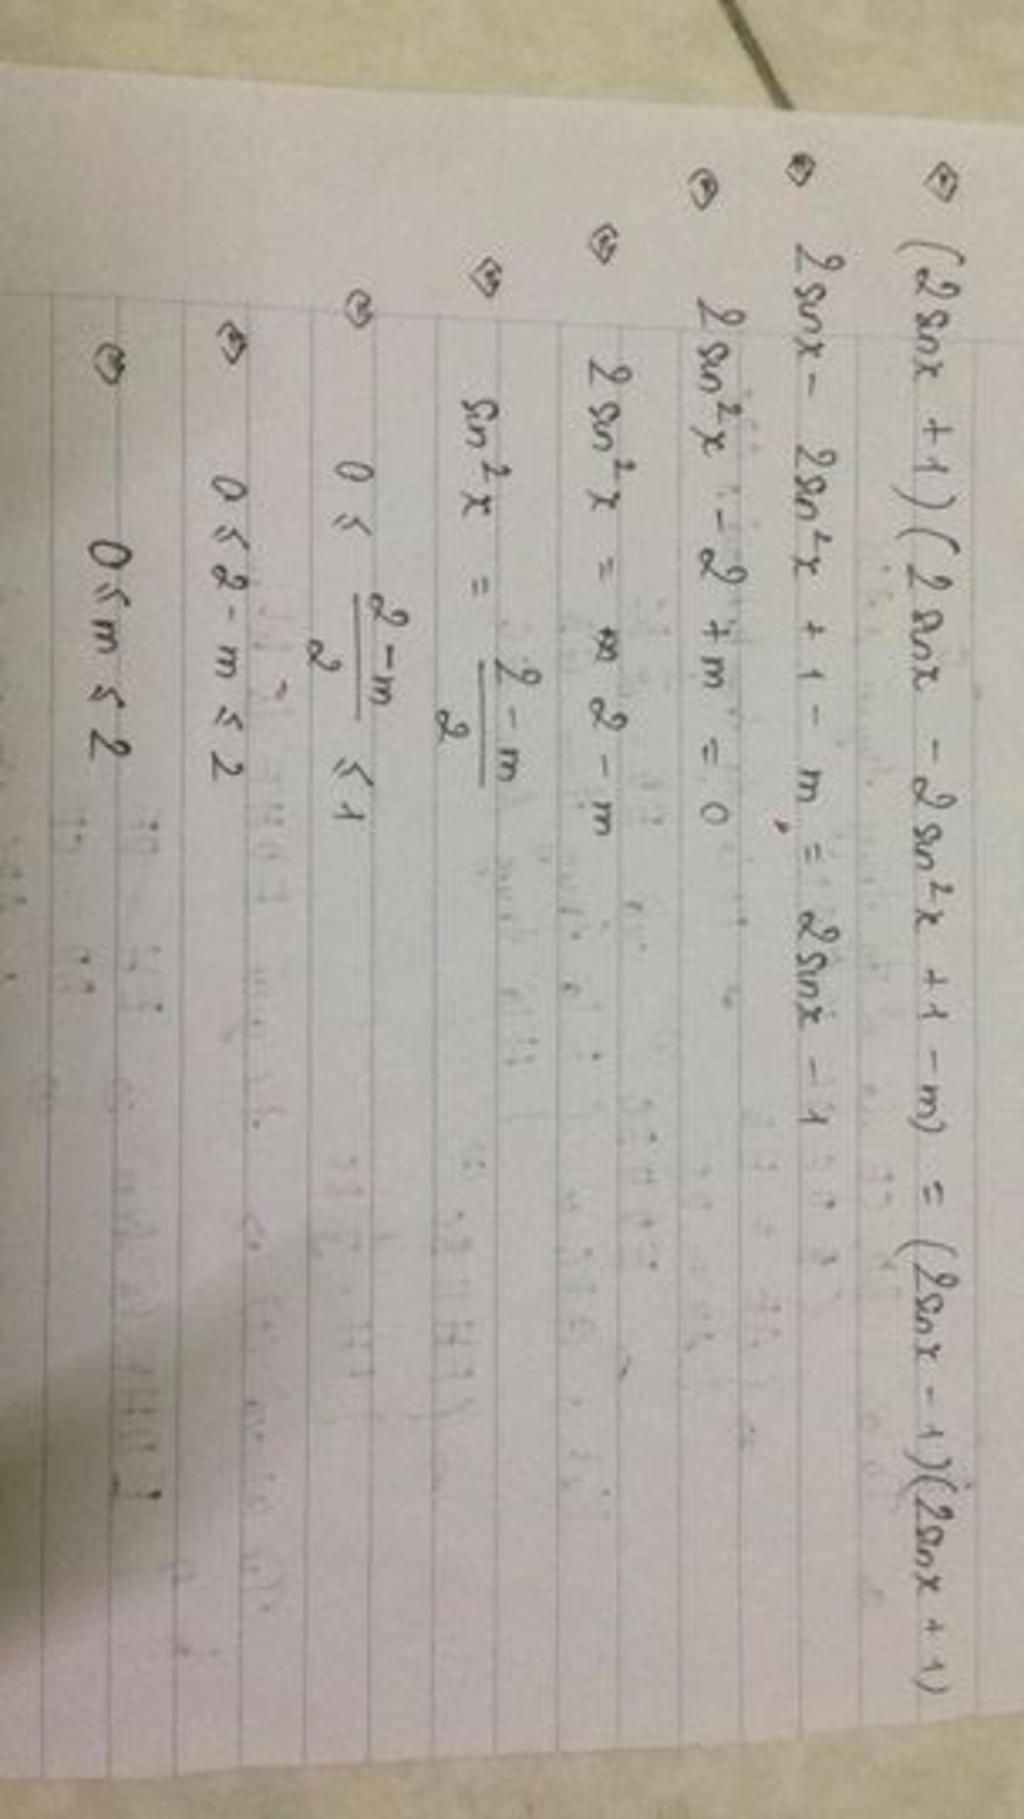 ⇔ (2sinx + 1)(2sinx - 2sin²x + 1 - m) = (2sinx - 1)(2sinx + 1)
⇔ 2sinx - 2sin²x + 1 - m = 2sinx - 1
⇔ 2sin²x - 2 + m = 0
⇔ 2sin²x = 2 - m
⇔ sin²x = \frac{2 - m}{2}
⇔ 0 ≤ \frac{2 - m}{2} ≤ 1
⇔ 0 ≤ 2 - m ≤ 2
⇔ 0 ≤ m ≤ 2